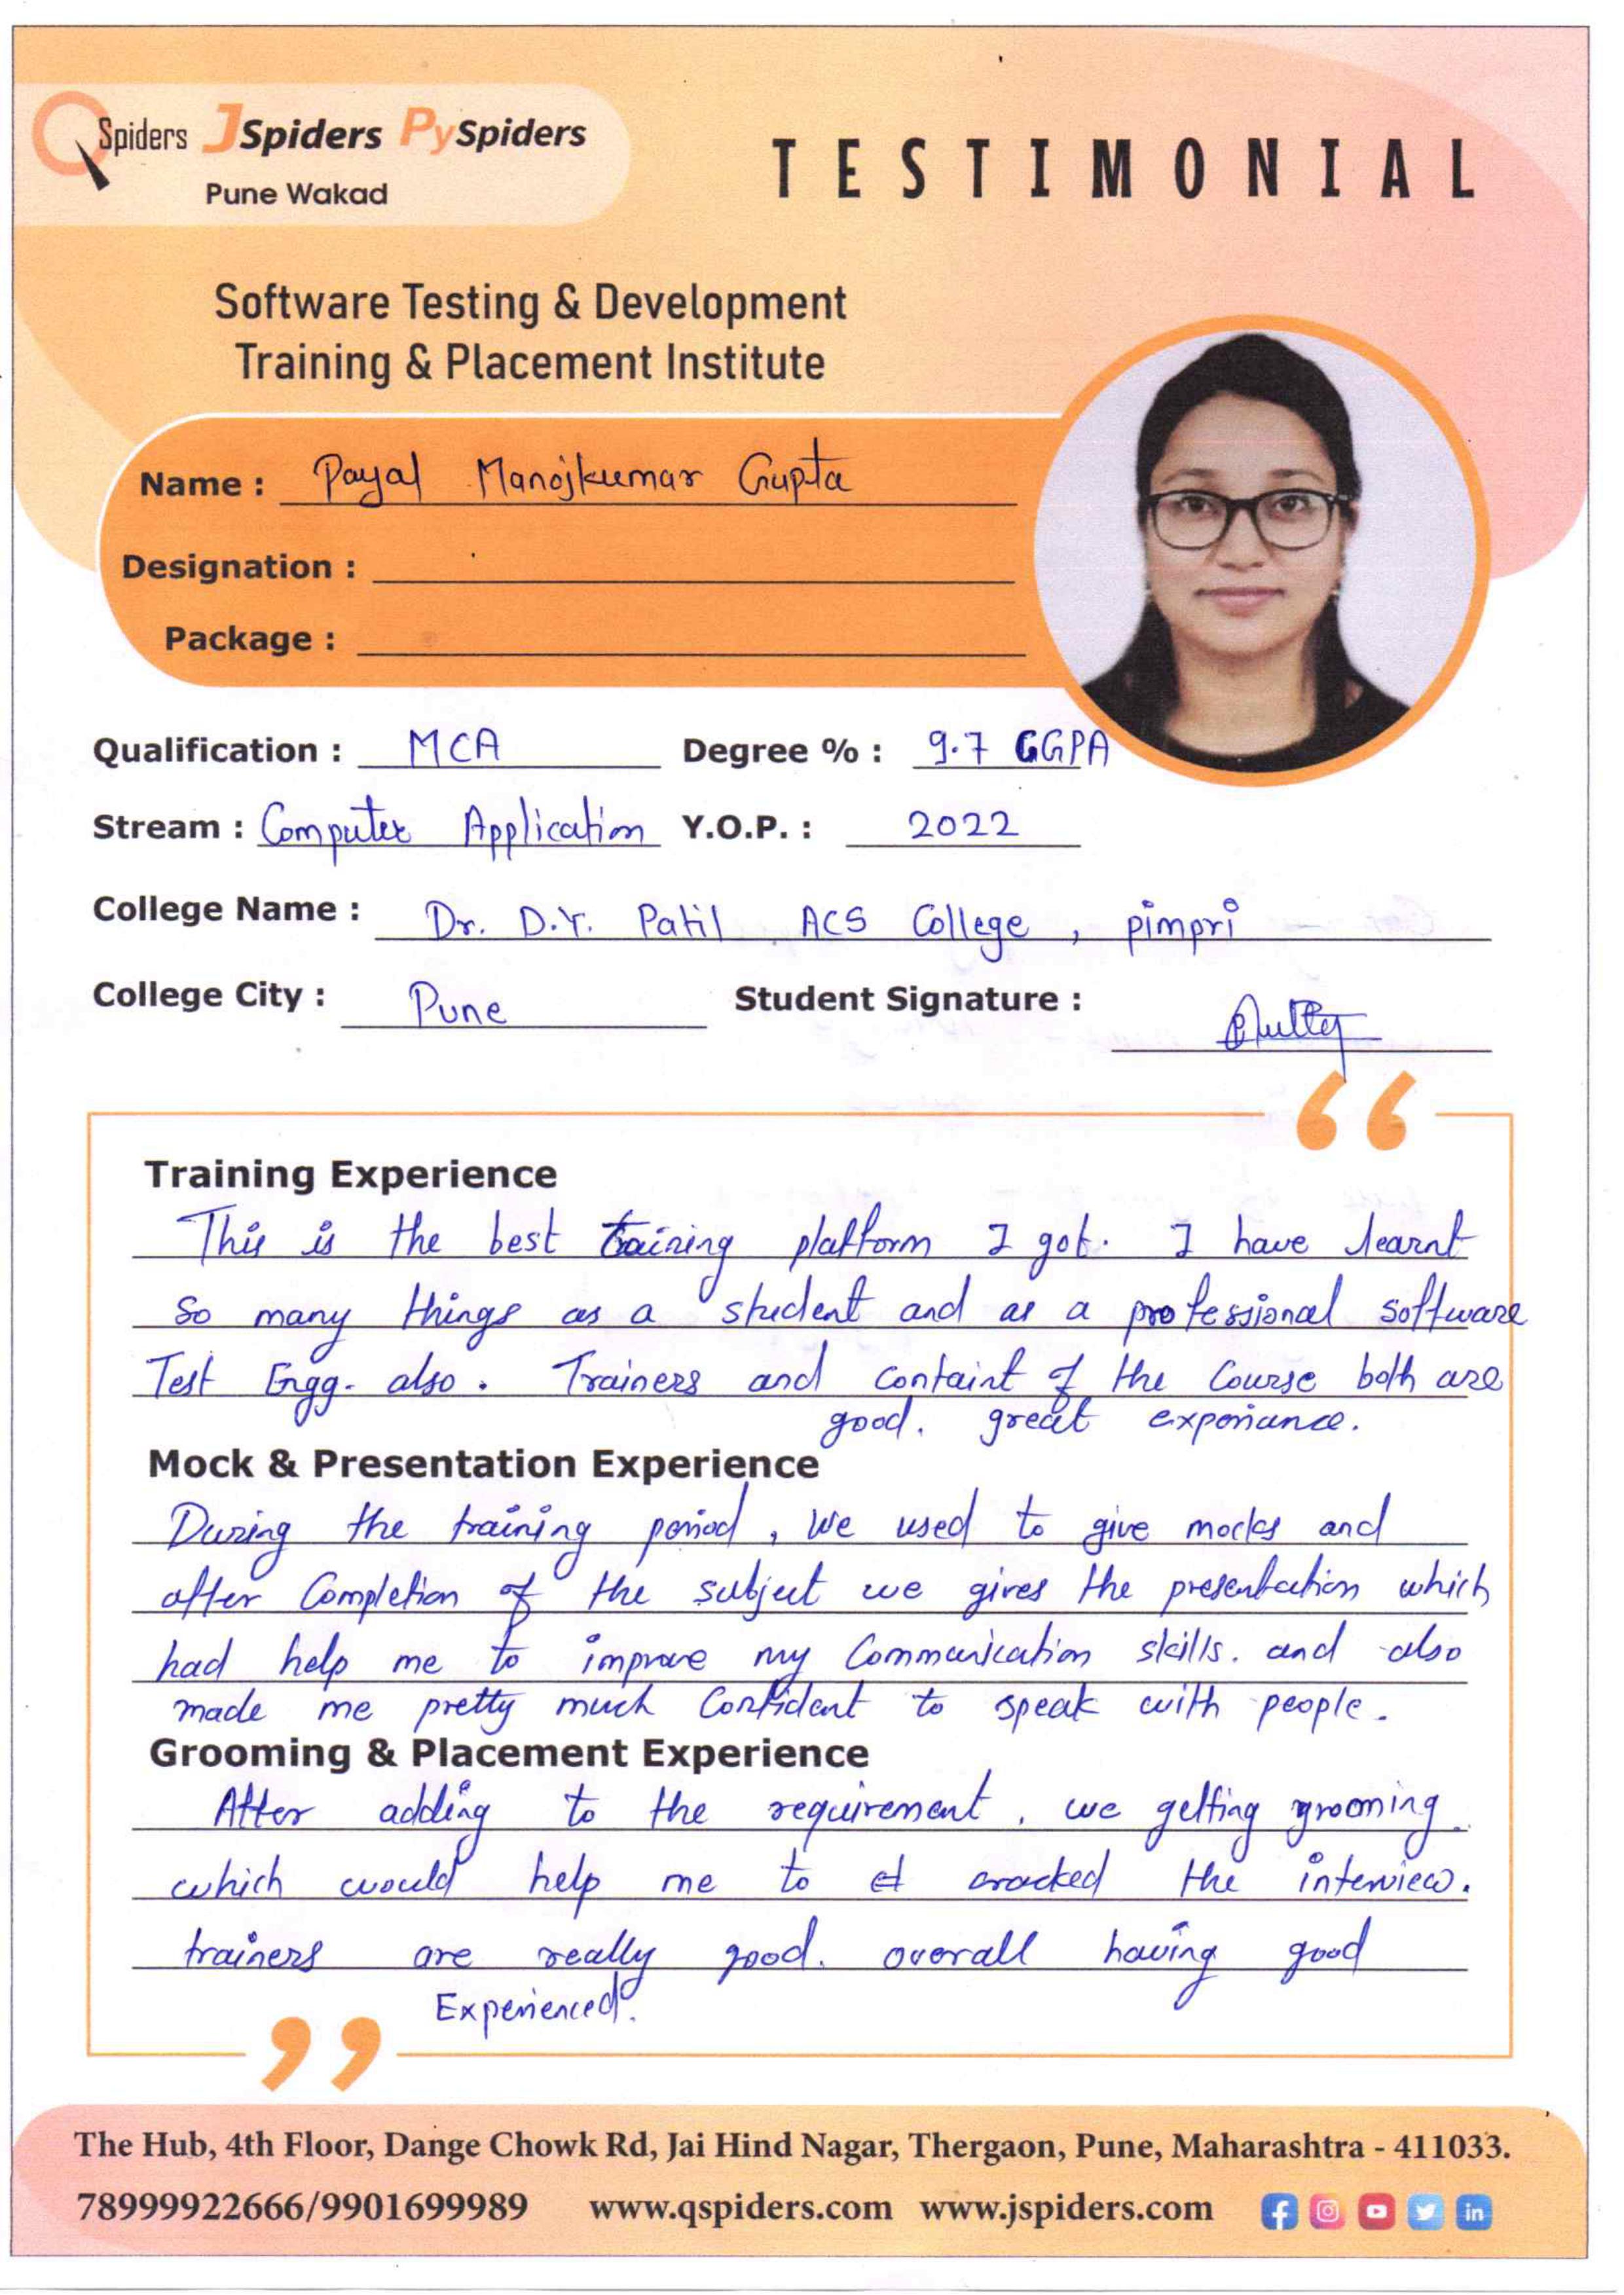 QSpiders JSpiders PySpiders
Pune Wakad
TESTIMONIAL
Software Testing & Development
Training & Placement Institute
Name : Payal Manojkumar Gupta
Designation :
Package :
Qualification : MCA Degree % : 9.7 GGPA
Stream : Computer Application Y.O.P. : 2022
College Name : Dr. D.Y. Patil ACS College, pimpri
College City : Pune Student Signature :
Training Experience
This is the best training platform I got. I have learnt
So many things as a student and as a professional software
Test Engg. also. Trainers and containt of the Course both are
good. great experiance.
Mock & Presentation Experience
During the training period, We used to give mocks and
after Completion of the subject we gives the presentation which
had help me to improve my Communication skills. and also
made me pretty much Confident to speak with people.
Grooming & Placement Experience
After adding to the requirement, we getting grooming
which would help me to cracked the interview.
trainers are really good. overall having good
Experienced.
The Hub, 4th Floor, Dange Chowk Rd, Jai Hind Nagar, Thergaon, Pune, Maharashtra - 411033.
78999922666/9901699989 www.qspiders.com www.jspiders.com